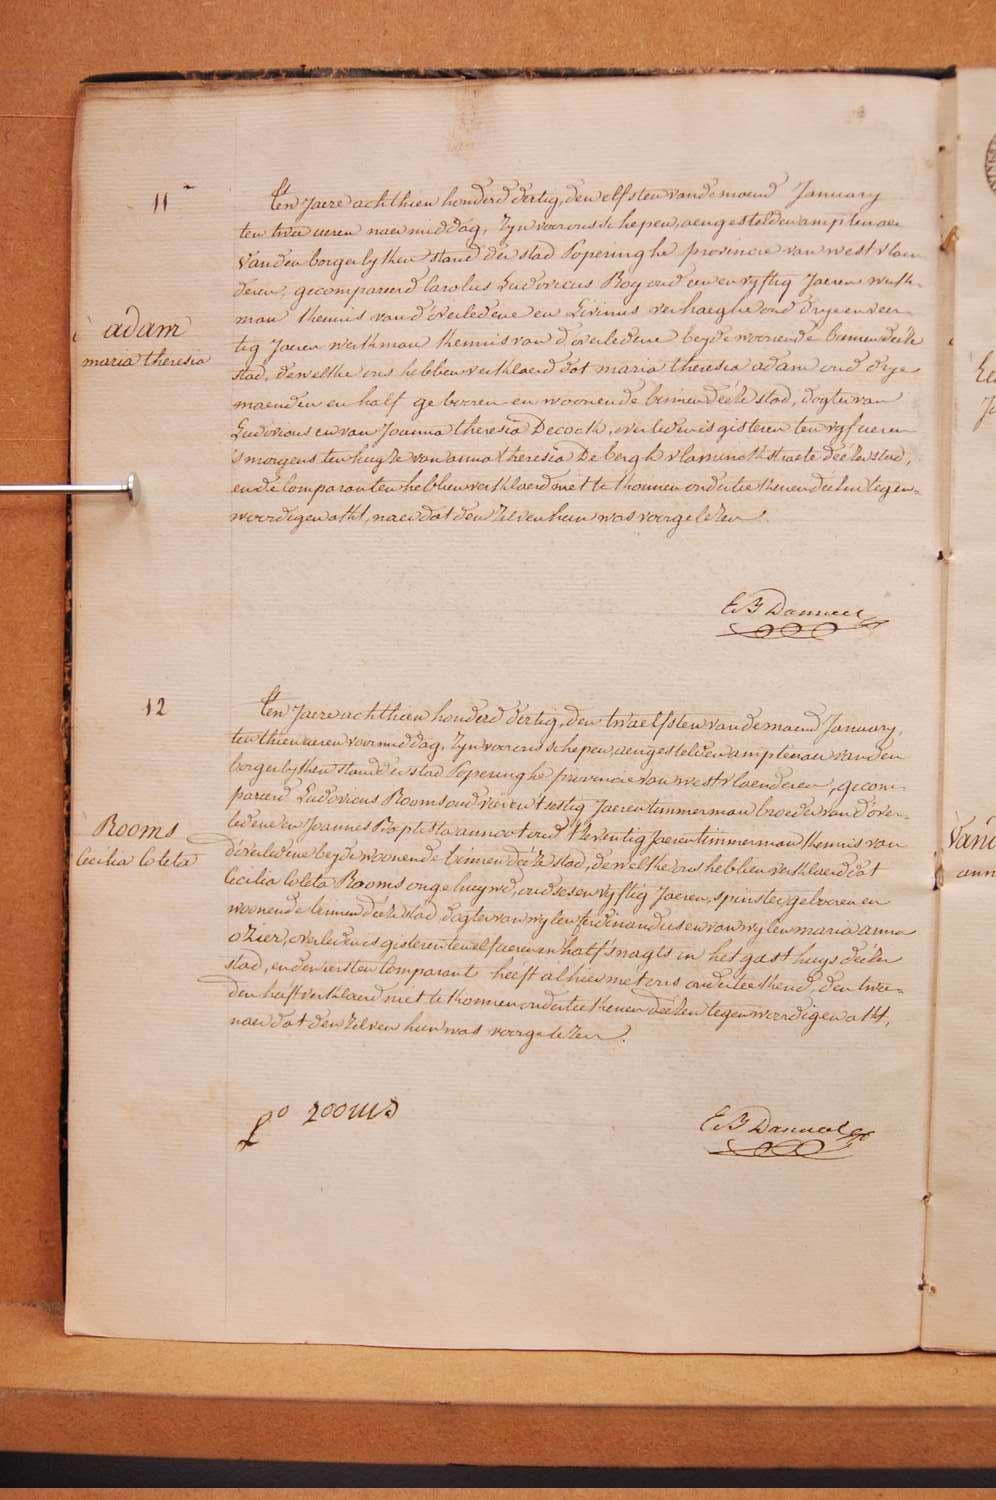 11
adam
maria theresia
Ten Jaere achthien honderd dertig, den elfsten van de maend January
ten twee ueren naer middag, Zyn voor ons schepen, aengestelden amptenaer
van den borgerlyken stand der stad Poperinghe provincie van west vlaen-
deren, gecompareerd Carolus Ludovicus Roy oud een en vyftig Jaeren werk-
man kennis van d'overledene en Livinus verhaeghe oud drye en veer-
tig Jaeren werkman kennis van d'overledene beyde woonende binnen deéze
stad, dewelke ons hebben verklaerd dat maria theresia adam oud drye
maenden en half geboren en woonende binnen deéze stad, dogter van
Ludovicus en van Joanna theresia Decock, overleden is gisteren ten vyf ueren
'smorgens ten huyze van anna theresia De bergh vlaminckstraete deézer stad,
en de Comparanten hebben verklaerd met te konnen onderteekenen deézen tegen-
woordigen akt, naer dat den zelven hun was voorgelezen.
12
Rooms
Cecilia Coleta
Ten Jaere achthien honderd dertig, den twaelfsten van de maend January,
ten thien ueren voormiddag, Zyn voor ons schepen, aengestelden amptenaer van den
borgerlyken stand der stad Poperinghe provincie van west vlaenderen, gecom-
pareerd Ludovicus Rooms oud vier en t'sestig Jaeren timmerman broeder van d'over-
ledene en Joannes Baptista annoot oud t'kventig Jaeren timmerman kennis van
d'overledene beyde woonende binnen deéze stad, dewelke ons hebben verklaerd dat
Cecilia Coleta Rooms ongehuywd, oud ses en vyftig Jaeren, spinster, geboren en
woonende binnen deéze stad dogter van wylen ferdinandus en van wylen maria anna
ozier, overleden is gisteren ten elf ueren en half 'snagts in het gasthuys deézer
stad, en den eersten Comparant heéft alhier met ons onderteekend, den twee-
den heéft verklaerd niet te konnen onderteekenen deézen tegenwoordigen akt,
naer dat den zelven hun was voorgelezen.
Lo rooms